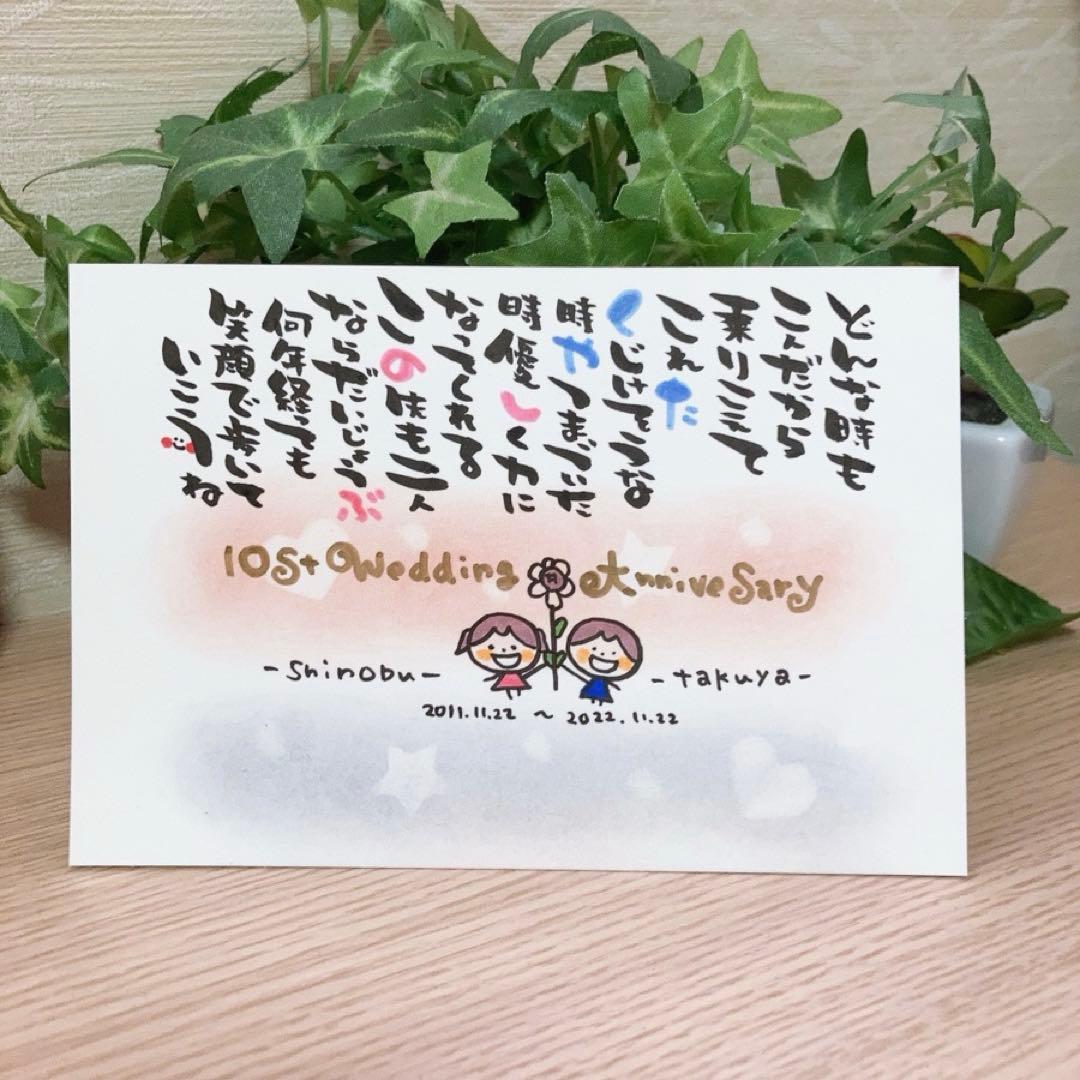 どんな時も
二人だから
乗りこえて
これた
くじけそうな
時やつまづいた
時優しく力に
なってくれる
この先も二人
ならだいじょうぶ
何年経っても
笑顔で歩いて
いこうね
10st Wedding AnniveSary
-shinobu- -takuya-
2011.11.22 ~ 2022.11.22